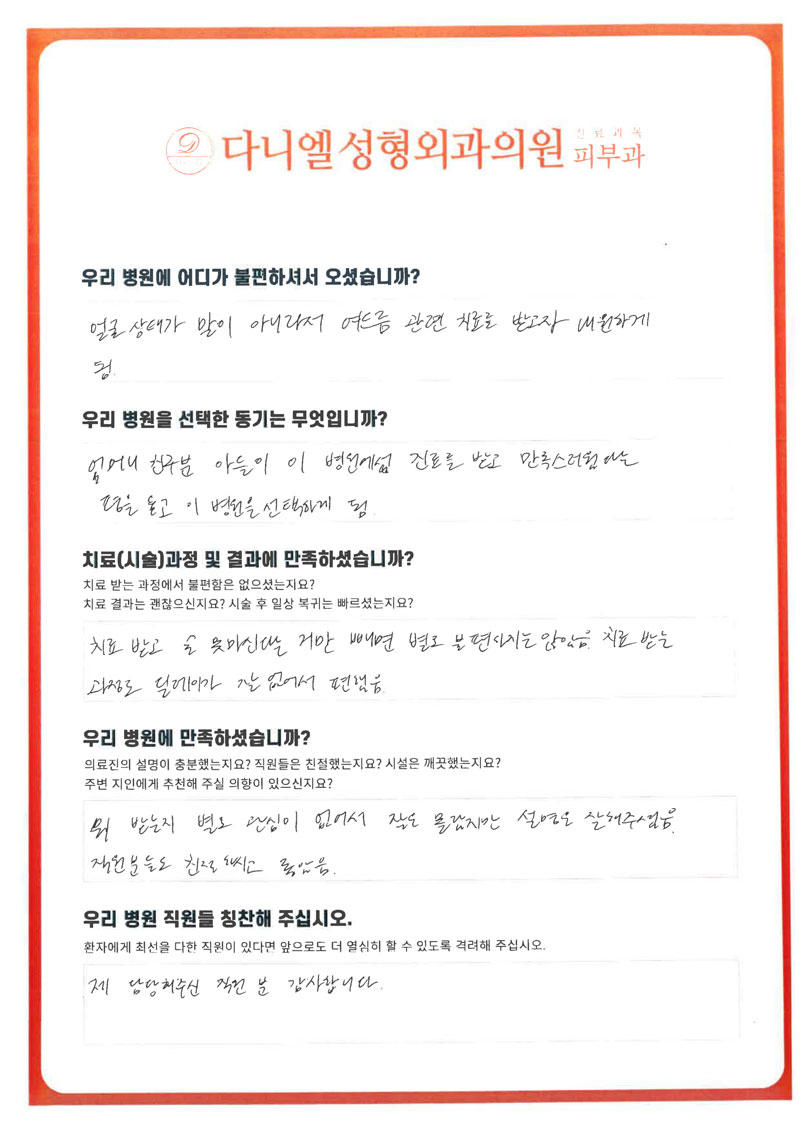 다니엘성형외과의원 진료과목 피부과
우리 병원에 어디가 불편하셔서 오셨습니까?
얼굴 상태가 말이 아니라서 여드름 관련 치료를 받고자 내원하게
됨.
우리 병원을 선택한 동기는 무엇입니까?
어머니 친구분 아들이 이 병원에서 진료를 받고 만족스러웠다는
평을 듣고 이 병원을 선택하게 됨.
치료(시술)과정 및 결과에 만족하셨습니까?
치료 받는 과정에서 불편함은 없으셨는지요?
치료 결과는 괜찮으신지요? 시술 후 일상 복귀는 빠르셨는지요?
치료 받고 술 못마신다는 거만 빼면 별로 불편하지는 않았음. 치료 받는
과정도 딜레이가 없어서 편했음.
우리 병원에 만족하셨습니까?
의료진의 설명이 충분했는지요? 직원들은 친절했는지요? 시설은 깨끗했는지요?
주변 지인에게 추천해 주실 의향이 있으신지요?
뭐 받는지 별로 관심이 없어서 잘은 몰랐지만 설명은 잘해주셨음.
직원분들도 친절하시고 좋았음.
우리 병원 직원들 칭찬해 주십시오.
환자에게 최선을 다한 직원이 있다면 앞으로도 더 열심히 할 수 있도록 격려해 주십시오.
제 담당해주신 직원 분 감사합니다.